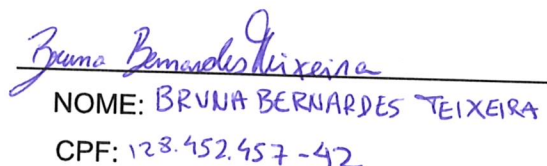 Bruna Bernardes Teixeira
NOME: BRUNA BERNARDES TEIXEIRA
CPF: 128.452.457-42